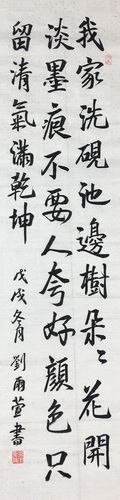 我家洗硯池邊樹朵〻花開
淡墨痕不要人夸好顏色只
留清氣滿乾坤
戊戌冬月 劉雨萱書